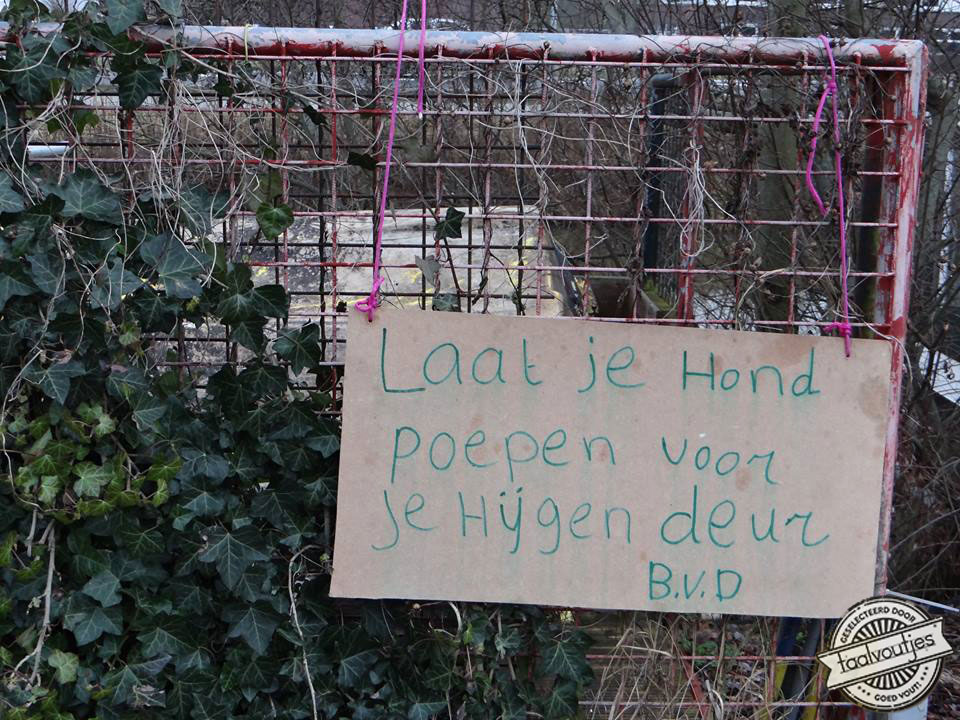 Laat je Hond
poepen voor
je Hijgen deur
B.v.D
GESELECTEERD DOOR
taalvoutjes
GOED VOUT!